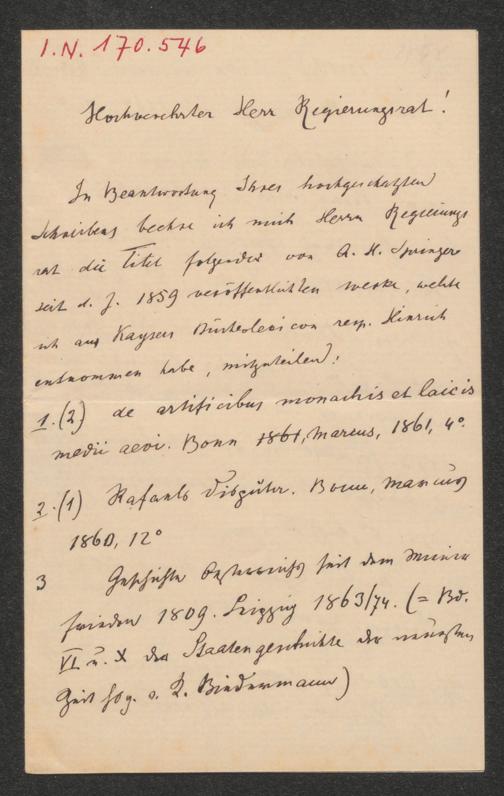 I.N. 170.546
Hochverehrter Herr Regierungsrat!
In Beantwortung Ihres hochgeschätzten
Schreibens beehre ich mich Herrn Regierungs
rat die Titel folgender von A. H. Springer
seit d. J. 1859 veröffentlichten Werke, welche
ich aus Kaysers Bücherlexicon resp. Hinrich
entnommen habe, mitzuteilen:
1. (2) de artificibus monachis et laicis
medii aevi. Bonn 1861, Marcus, 1861, 4°.
2. (1) Rafaels Disputa. Bonn, Marcus
1860, 12°
3 Geschichte Österreichs seit dem Wiener
Frieden 1809. Leipzig 1863/74. (= Bd.
VI u. X der Staatengeschichte der neuesten
Zeit hsg. v. K. Biedermann)